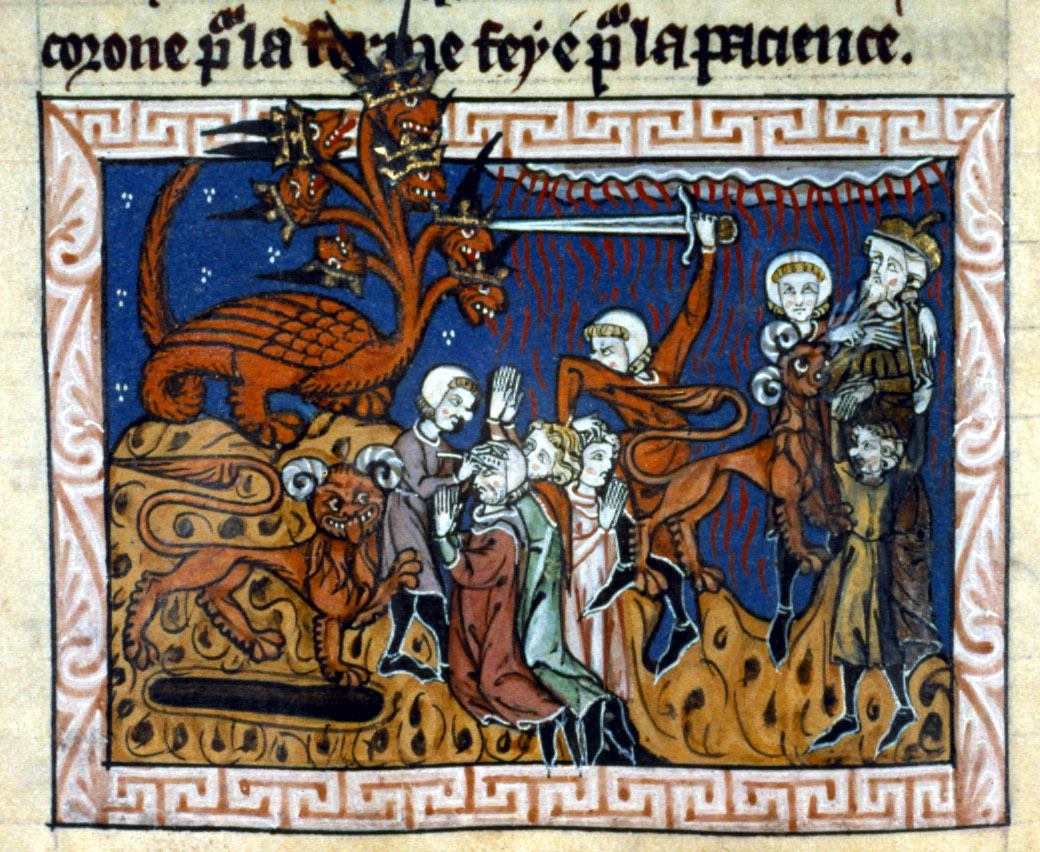 corone p la ferme fey ⁊ p la pacience.